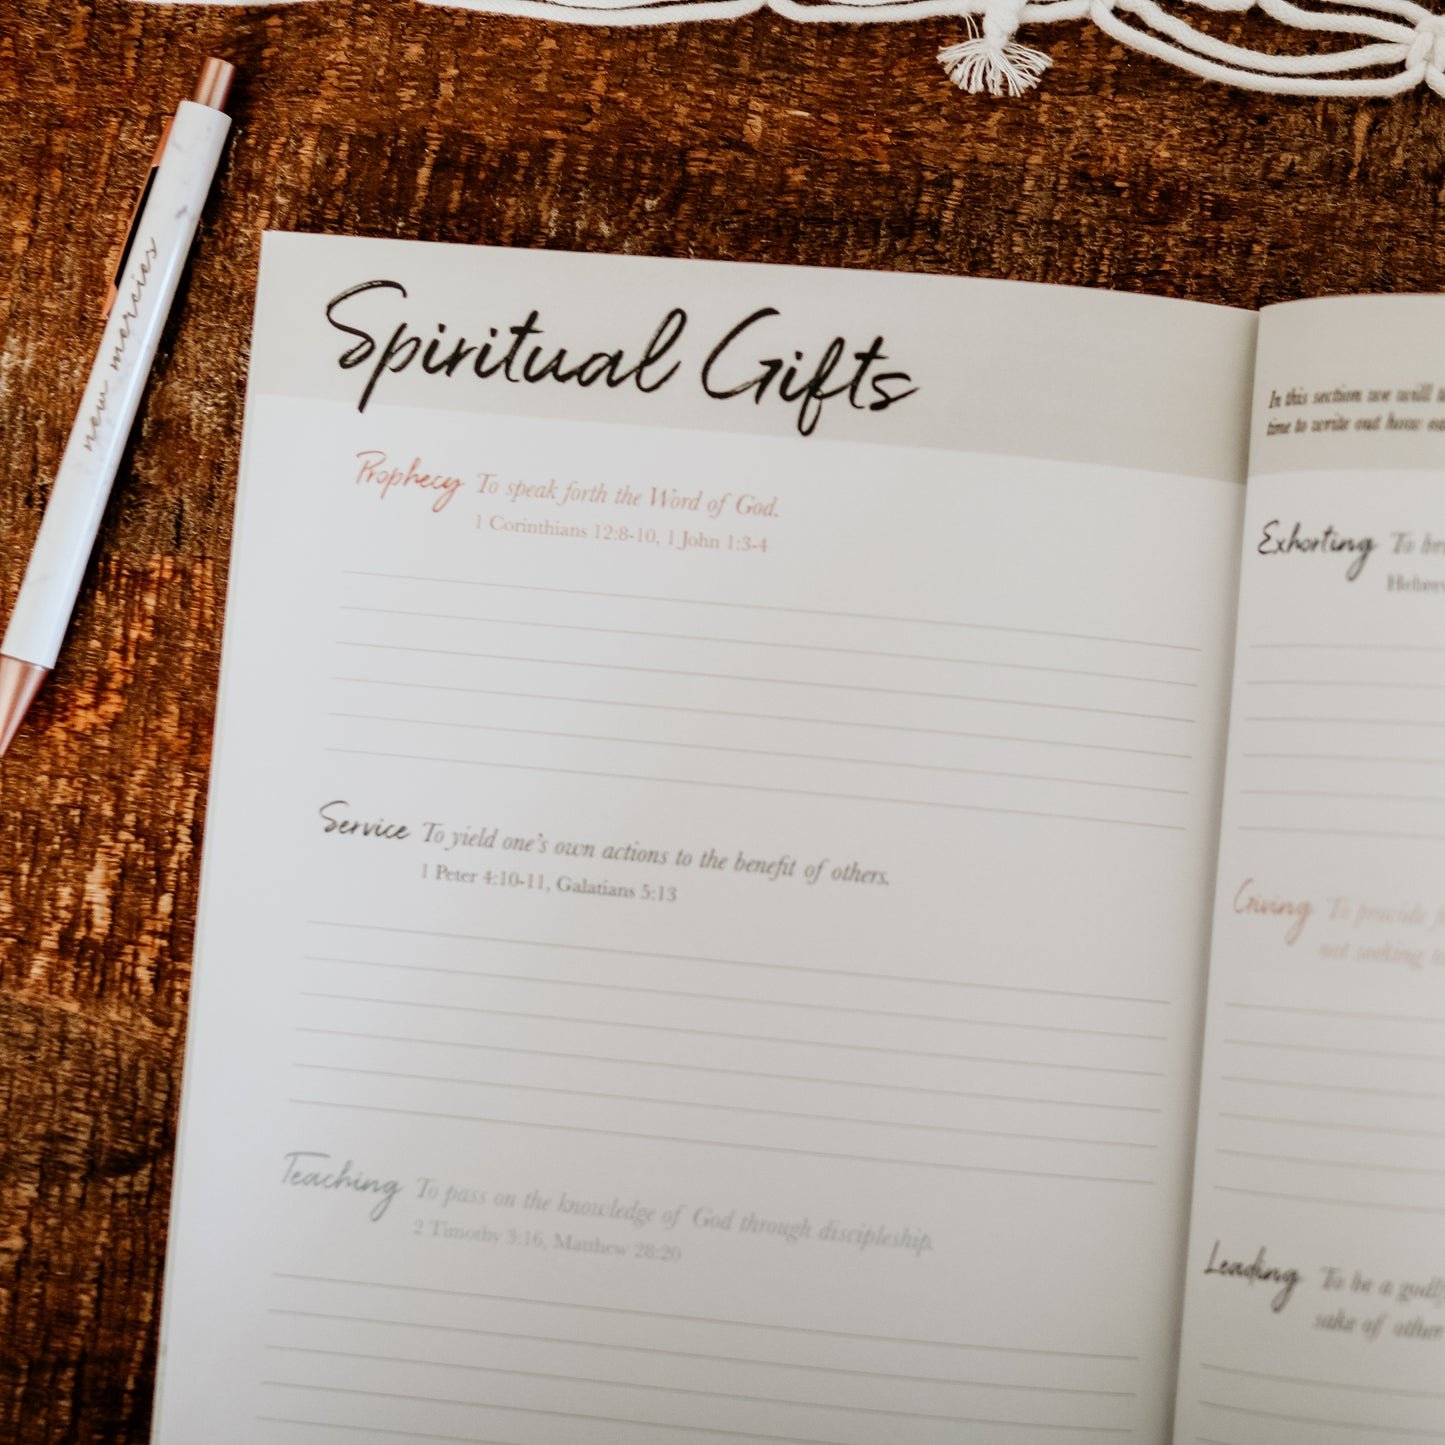 new mercies
Spiritual Gifts
Prophecy To speak forth the Word of God.
1 Corinthians 12:8-10, 1 John 1:3-4
Service To yield one's own actions to the benefit of others.
1 Peter 4:10-11, Galatians 5:13
Teaching To pass on the knowledge of God through discipleship.
2 Timothy 3:16, Matthew 28:20
In this section we will
time to write out how
Exhorting To
Giving To provide
not seeking
Leading To be a
sake of